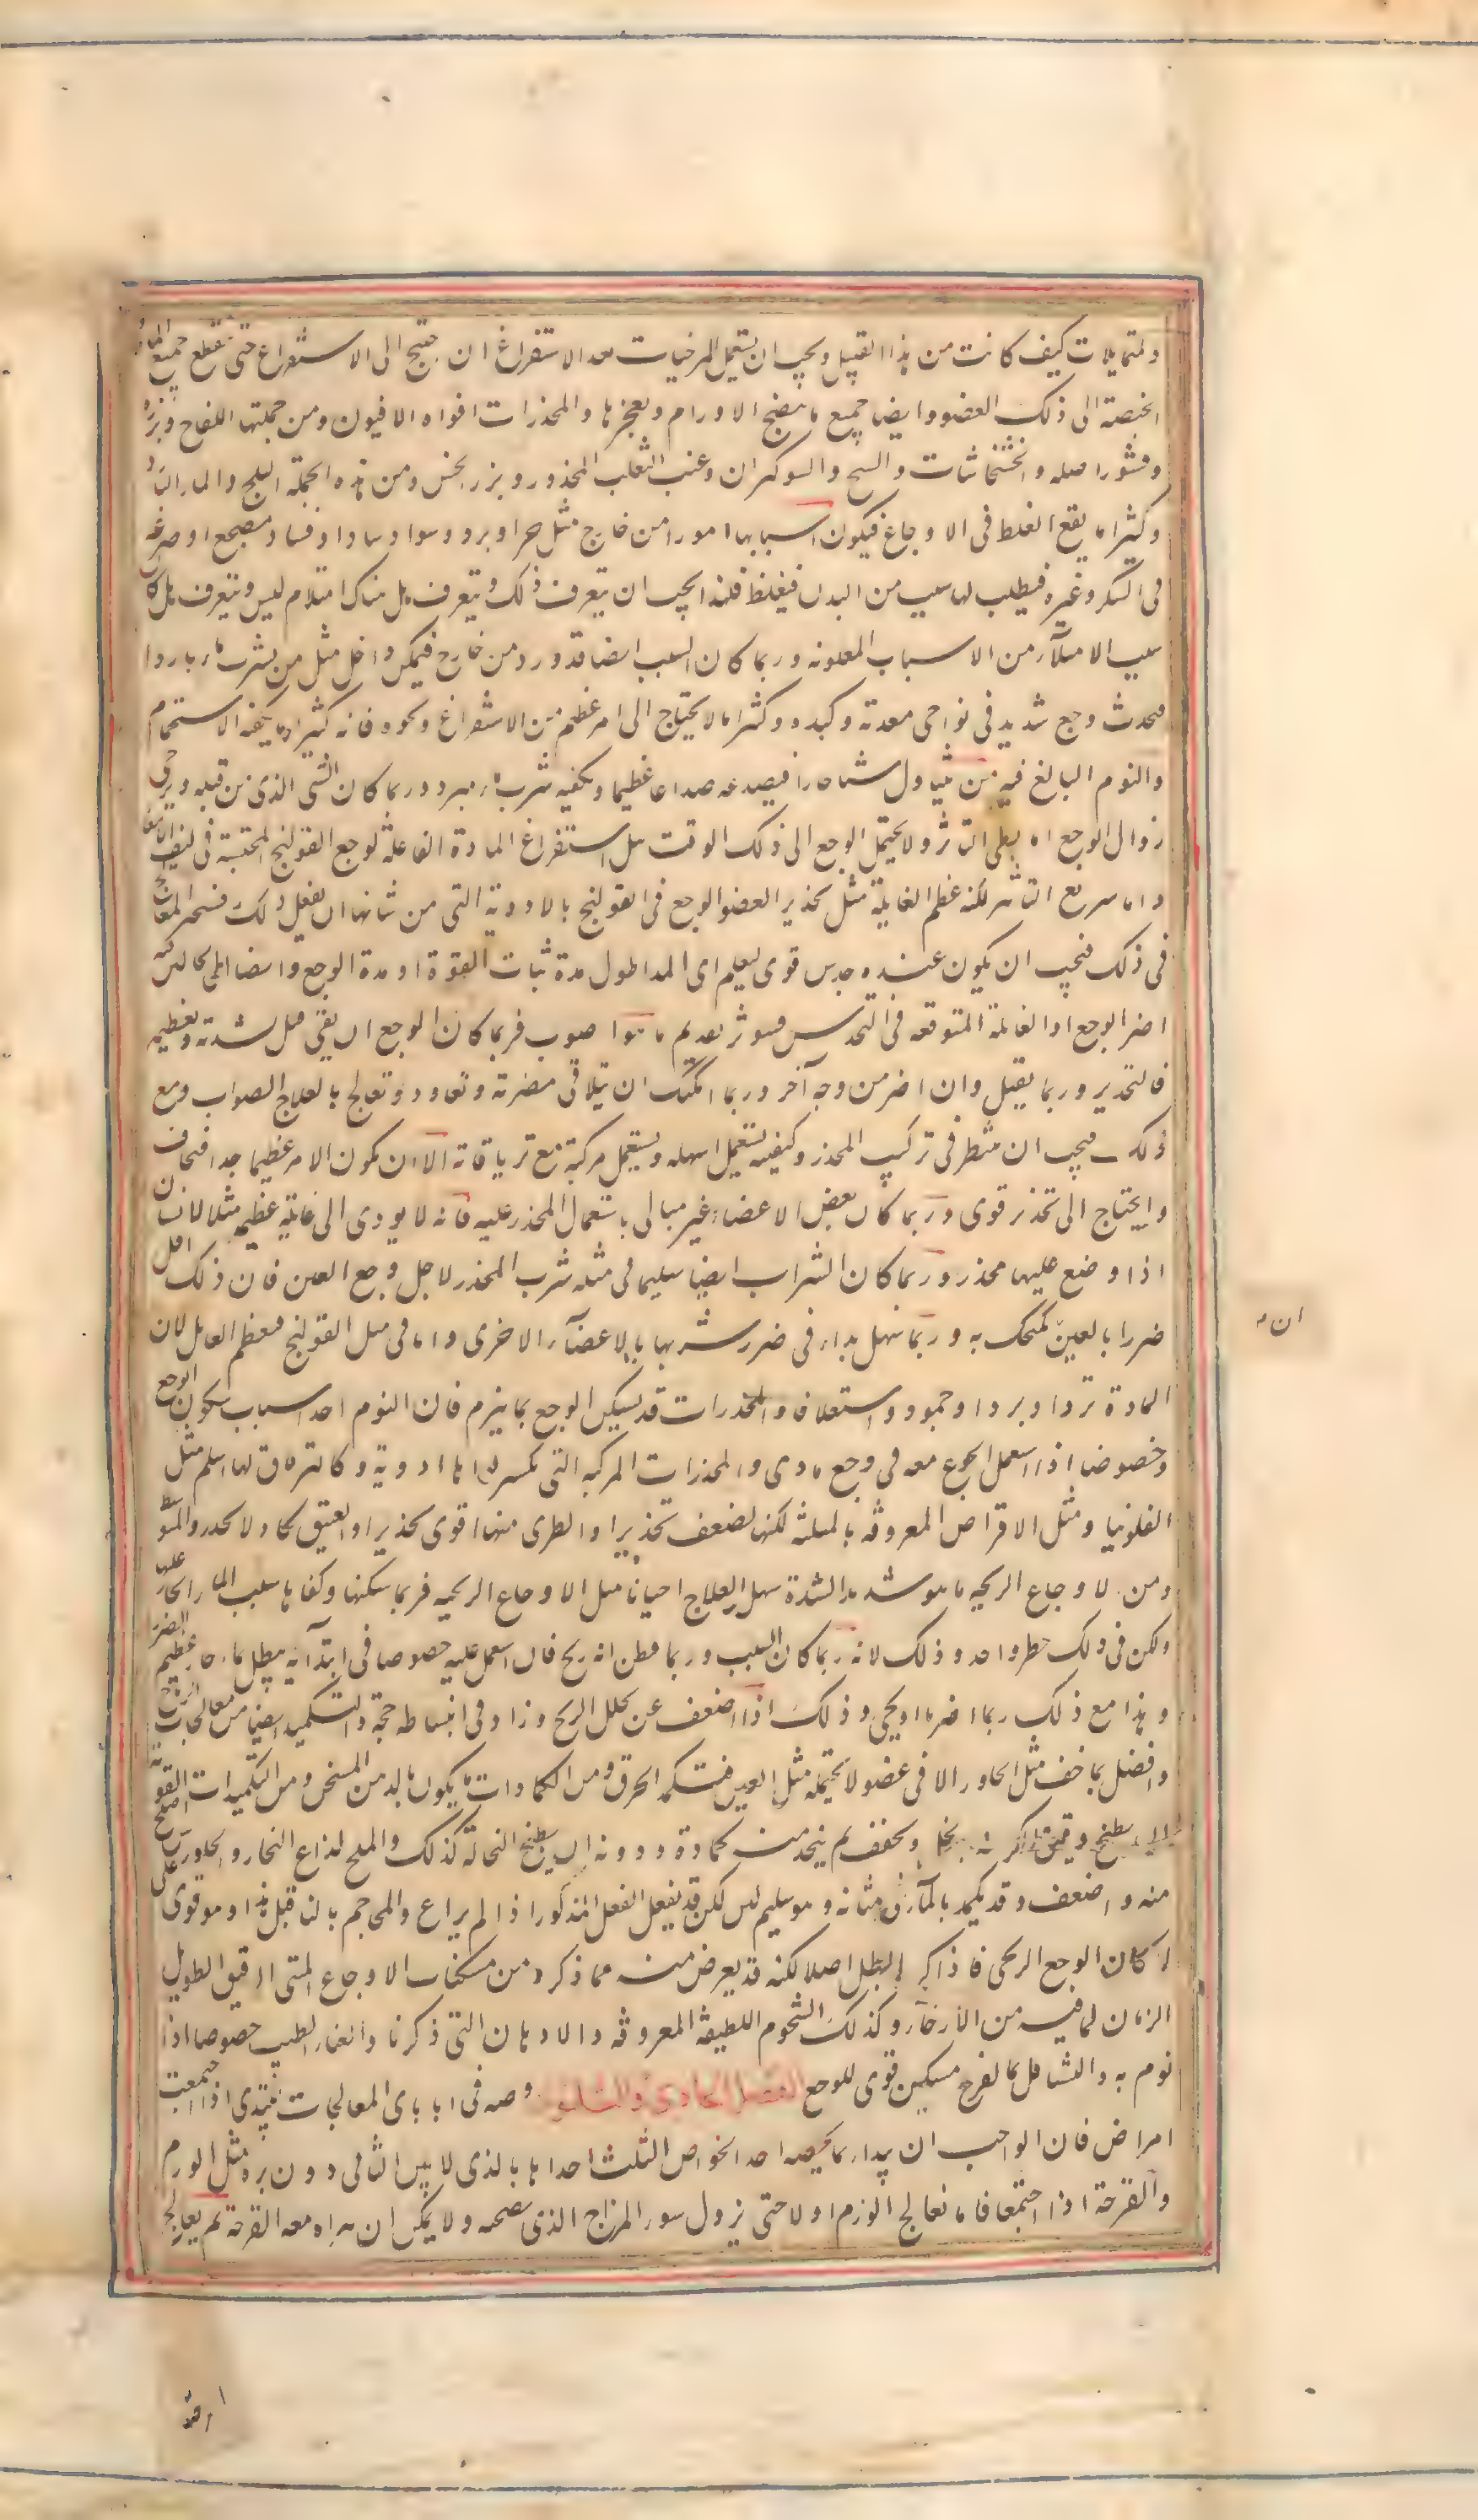 كيف كانت من هذا القبيل ويجب ان يستعمل المرخيات بعد الاستفراغ ان احتيج الى الاستفراغ حتى ينقطع جميع المواد
الى ذلك العضو وايضا جميع ما ينضج الاورام ويفجرها والمخدرات اقواها الافيون ومن جملتها اللفاح وبزره
وقشور اصله والخشخاشات والبنج والشوكران وعنب الثعلب المخدر وبزر الخس ومن هذه الجملة الثلج والماء البارد
وكثيرا ما يقع الغلط فى الاوجاع فيكون اسبابها امورا من خارج مثل حر او برد او سوء وساد او فساد مضجع او صرعة
فى السكر وغيره فيطلب لها سبب من البدن فيغلط فلهذا يجب ان يتعرف ذلك ويتعرف هل هناك امتلاء ام ليس ويتعرف هل كان
سبب الامتلآء من الاسباب المعلومة وربما كان السبب ايضا قد ورد من خارج فتمكن داخل مثل من يشرب ماء باردا
فيحدث وجع شديد فى نواحى معدته وكبده وكثيرا ما لا يحتاج الى امر عظيم من الاستفراغ ونحوه فانه كثيرا ما يكفيه الاستحمام
والنوم البالغ فيه من يتناول شيئا حارا فيصدعه صداعا عظيما ويكفيه شرب ماء مبرد وربما كان الشى الذى من قبله يرجى
زوال الوجع اما بطى التاثر ولا يحتمل الوجع الى ذلك الوقت مثل استفراغ المادة الفاعلة لوجع القولنج المحتبسة فى ليف الامعا
واما سريع التاثير لكنه عظيم الغايلة مثل تخدير العضو الوجع فى القولنج بالادوية التى من شانها ان تفعل ذلك فيتحير المعالج
فى ذلك فيجب ان يكون عنده حدس قوى ليعلم اى المدتين اطول مدة ثبات القوة او مدة الوجع وايضا اى الحالتين فيه
اضر الوجع او الغايلة المتوقعة فى التخدير فيوثر تقديم ما هو اصوب فربما كان الوجع ان بقى قتل بشدته وبعظمه
فالتخدير وربما يقتل وان اضر من وجه آخر وربما امكنك ان تتلافى مضرته وتعاود وتعالج بالعلاج الصواب ومع
ذلك فيجب ان تنظر فى تركيب المخدر وكيفيته وتستعمل اسهله وتستعمل مركبه مع ترياقاته الا ان يكون الامر عظيما جدا فتخاف
وتحتاج الى تخدير قوى وربما كان بعض الاعضاء غير مبالى باستعمال المخدر عليه فانه لا يودى الى غايلة عظيمة مثل الاسنان
اذا وضع عليها مخدر وربما كان الشراب ايضا سليما فى مثله شرب المخدر لاجل وجع العين فان ذلك اقل
ضررا بالعين من ان تكتحل به وربما سهل تدارك ضرر شربها بالاعضآء الاخرى واما فى مثل القولنج فتعظم الغايلة لان
المادة تزداد بردا وجمودا واستغلاقا والمخدرات قد يسكن الوجع بما ينوم فان النوم احد اسباب سكون الوجع
وخصوصا اذا استعمل الجوع معه فى وجع مادى والمخدرات المركبه التى تكسر قواها ادوية هى كالترياق لها اسلم مثل
الفلونيا ومثل الاقراص المعروفه بالمثلثة لكنها اضعف تخديرا والطرى منها اقوى تخديرا والعتيق يكاد لا يخدر والمتوسط
ومن الاوجاع الريحيه ما هو شديد الشدة سهل العلاج احيانا مثل الاوجاع الريحيه فربما سكنها وكفاها صب الماء الحار عليها
ولكن فى ذلك خطر واحد وذلك لانه ربما كان السبب ورما فظن انه ريح فان استعمل عليه خصوصا فى ابتدآئه تبطيل بماء حار عظيم الضرر
وهذا مع ذلك ربما اضر بالريحى وذلك اذا ضعف عن تحليل الريح وزاد فى انبساط حجمه والتكميد ايضا من معالجات الرياح
وافضله بما خف مثل الجاورس الا فى عضو لا يحتمله مثل العين فتكمد بالخرق ومن الكمادات ما يكون بالدهن المسخن ومن التكميدات القوية
ان يطبخ دقيق الكرسنه بخل ويجفف ثم يتخذ منه كمادة ودونه ان يطبخ النخالة كذلك والملح لذاع البخار والجاورس اصلح
منه واضعف وقد يكمد بالمآء فى مثانة وهو سليم لين لكن قد يفعل الفعل المذكور اذا لم يراع والمحاجم بالنار قبل هذا وهو قوى على
اسكان الوجع الريحى فاذا كرر ابطل اصلا لكنه قد يعرض منه ما ذكر ومن مسكنات الاوجاع المشى الرقيق الطويل
الزمان لما فيه من الارخآء وكذلك الشحوم اللطيفة المعروفه والادهان التى ذكرنا والغناء الطيب خصوصا اذا
نوم به والتشاغل بما يفرح مسكن قوى للوجع الفصل الحادى والثلثون وصيه فى انا باى المعالجات نبتدى اذا اجتمعت
امراض فان الواجب ان نبداء بما يخصه احد الخواص الثلث احداها بالذى لا يبرا الثانى دون برئه مثل الورم
والقرحة اذا اجتمعا فانا نعالج الورم اولا حتى يزول سوء المزاج الذى يصحبه ولا يمكن ان تبراء معه القرحة ثم يعالج
ان